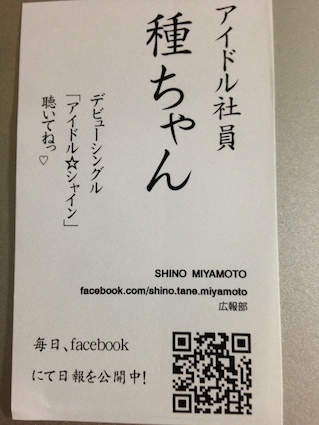 アイドル社員
種ちゃん
デビューシングル
「アイドル☆シャイン」
聴いてねっ♡
SHINO MIYAMOTO
facebook.com/shino.tane.miyamoto
広報部
毎日、facebook
にて日報を公開中!